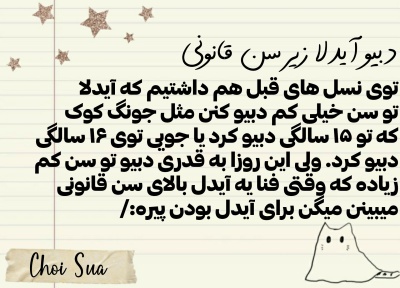 دبیو آیدلا زیر سن قانونی
توی نسل های قبل هم داشتیم که آیدلا
تو سن خیلی کم دبیو کنن مثل جونگ کوک
که تو ۱۵ سالگی دبیو کرد یا جویی توی ۱۶ سالگی
دبیو کرد. ولی این روزا به قدری دبیو تو سن کم
زیاده که وقتی فنا یه آیدل بالای سن قانونی
میبینن میگن برای آیدل بودن پیره:/
Choi Sua